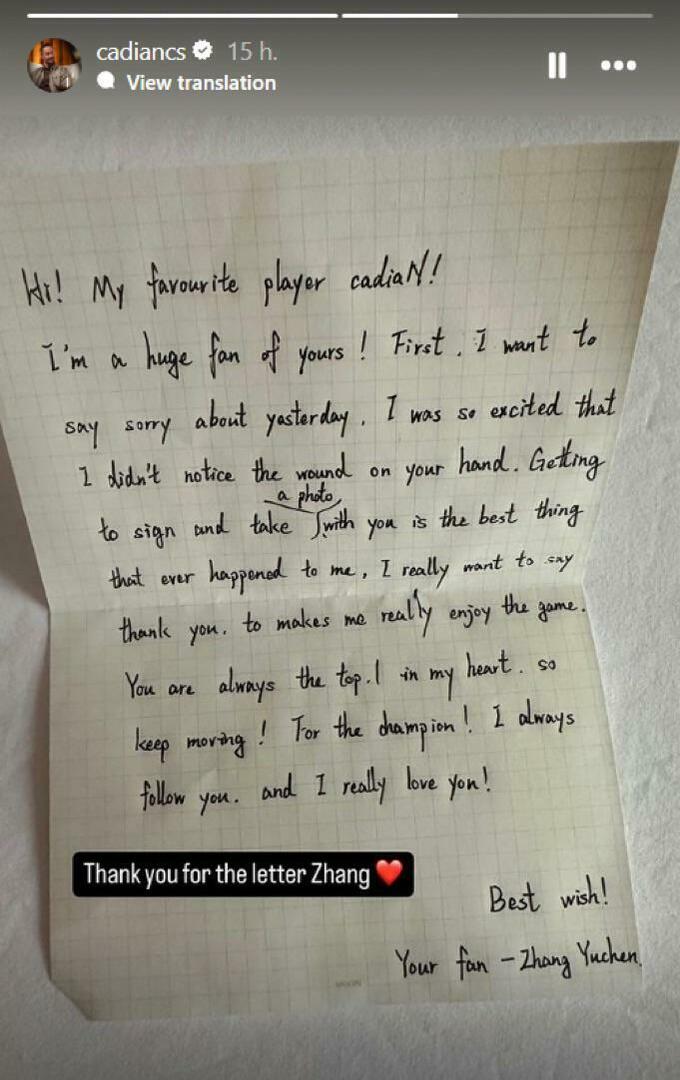 cadiancs 15 h.
View translation
Hi! My favourite player cadiaN!
I'm a huge fan of yours! First, I want to
say sorry about yesterday, I was so excited that
I didn't notice the wound on your hand. Getting
a photo
to sign and take with you is the best thing
that ever happened to me, I really want to say
thank you. to makes me really enjoy the game.
You are always the top.1 in my heart. so
keep moving! For the champion! I always
follow you. and I really love you!
Thank you for the letter Zhang ❤️
Best wish!
Your fan - Zhang Yuchen.